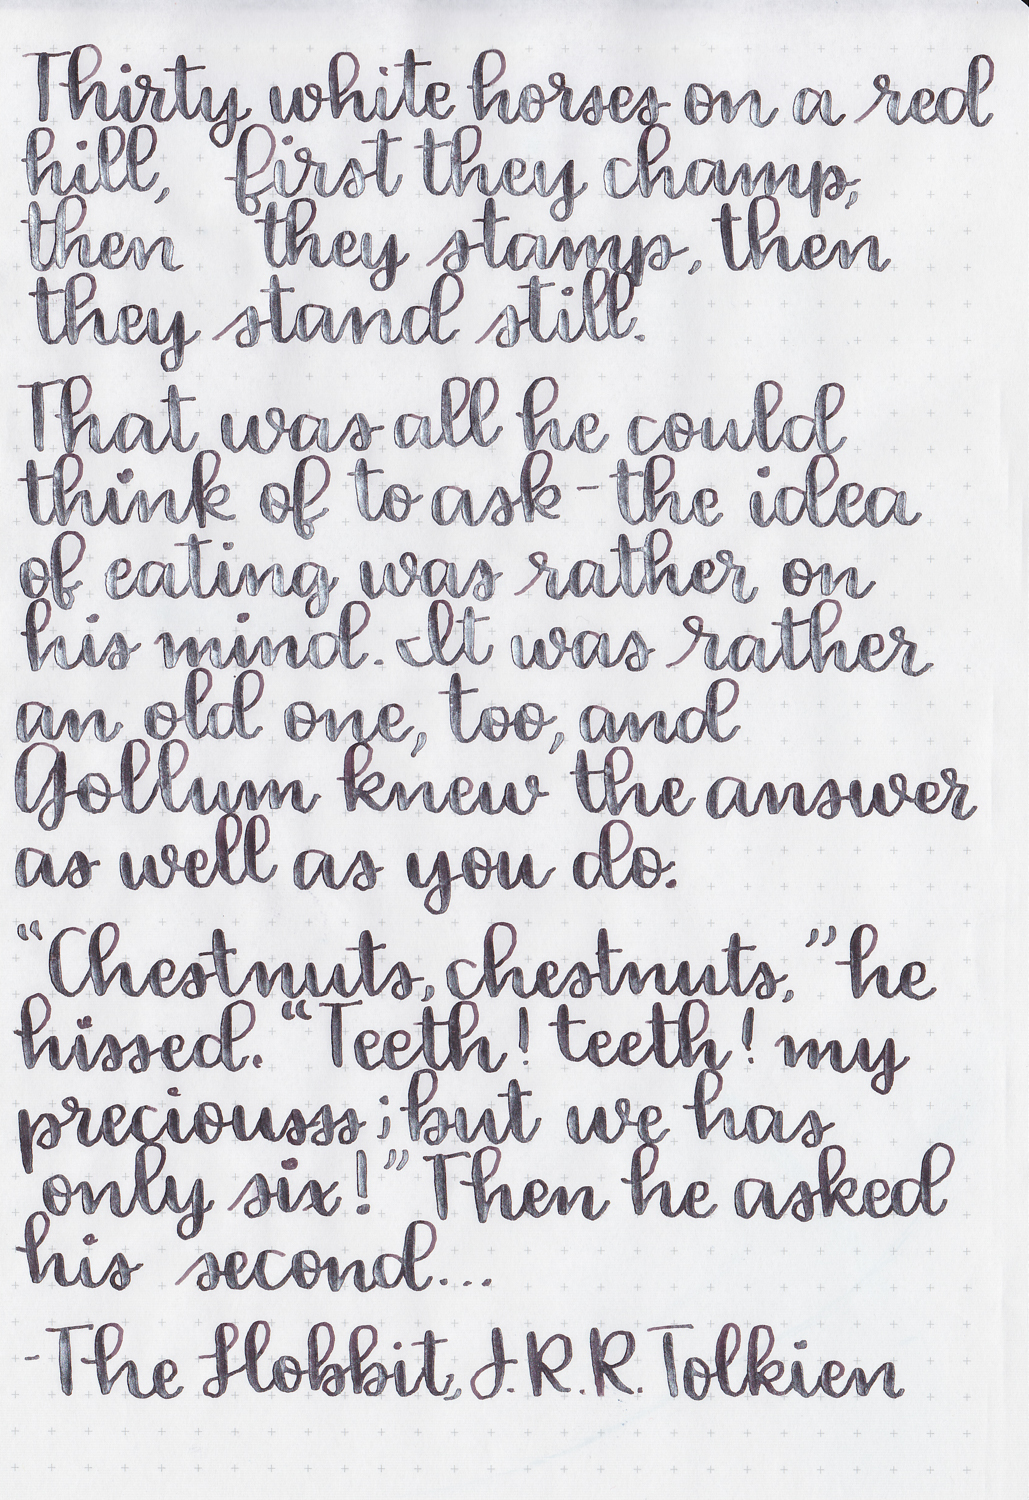 Thirty white horses on a red
hill, first they champ,
then they stamp, then
they stand still.
That was all he could
think of to ask - the idea
of eating was rather on
his mind. It was rather
an old one, too, and
Gollum knew the answer
as well as you do.
"Chestnuts, chestnuts," he
hissed. "Teeth! teeth! my
preciousss; but we has
only six!" Then he asked
his second...
-The Hobbit, J.R.R. Tolkien